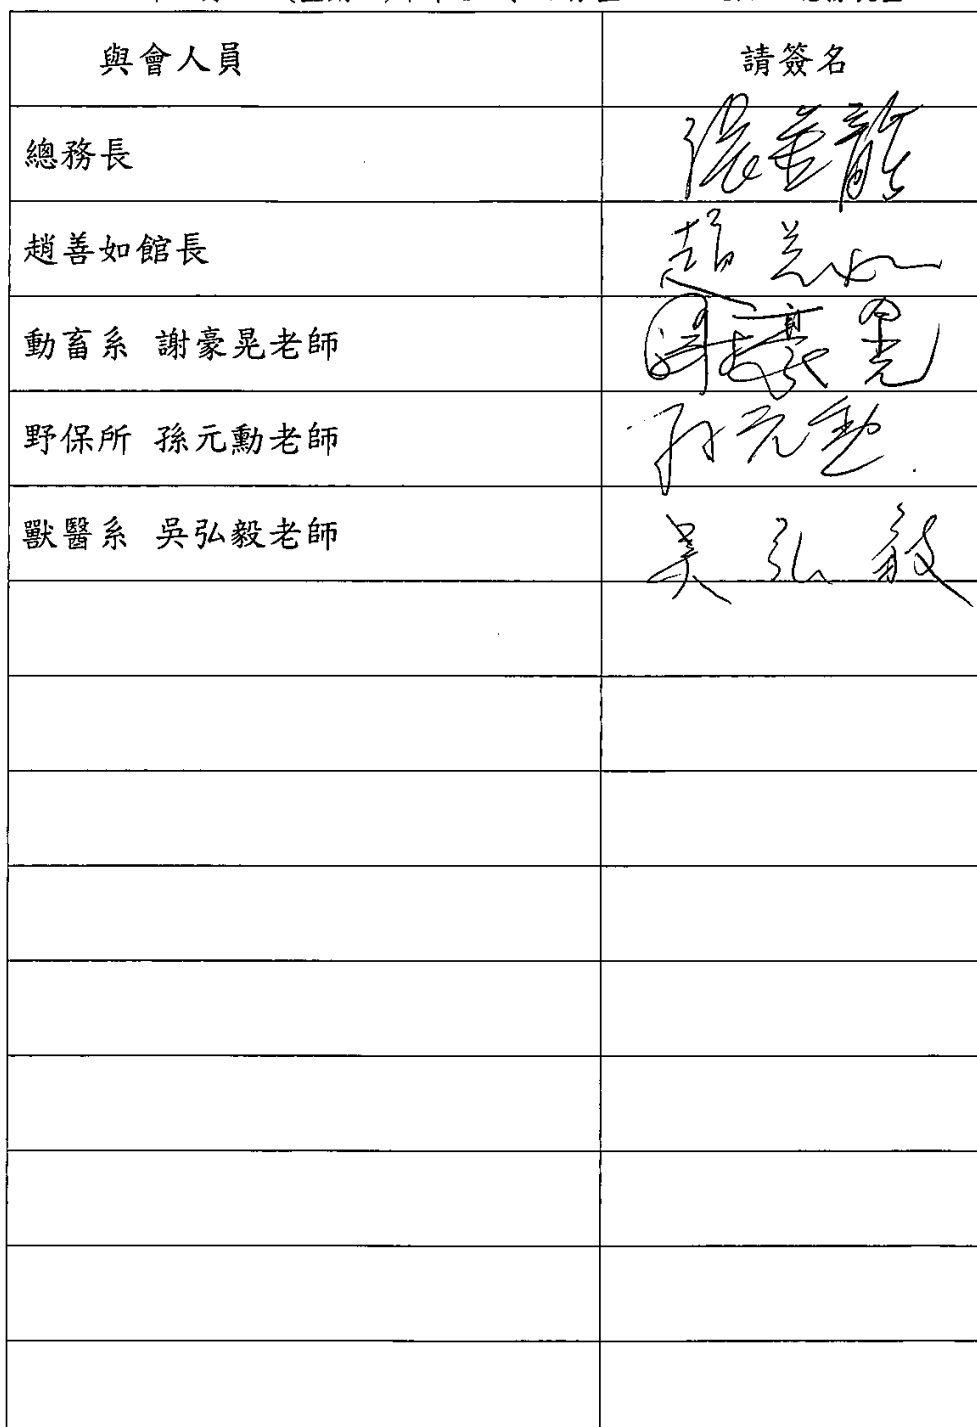 與會人員 請簽名
總務長 張金龍
趙善如館長 趙善如
動畜系 謝豪晃老師 謝豪晃
野保所 孫元勳老師 孫元勳
獸醫系 吳弘毅老師 吳弘毅